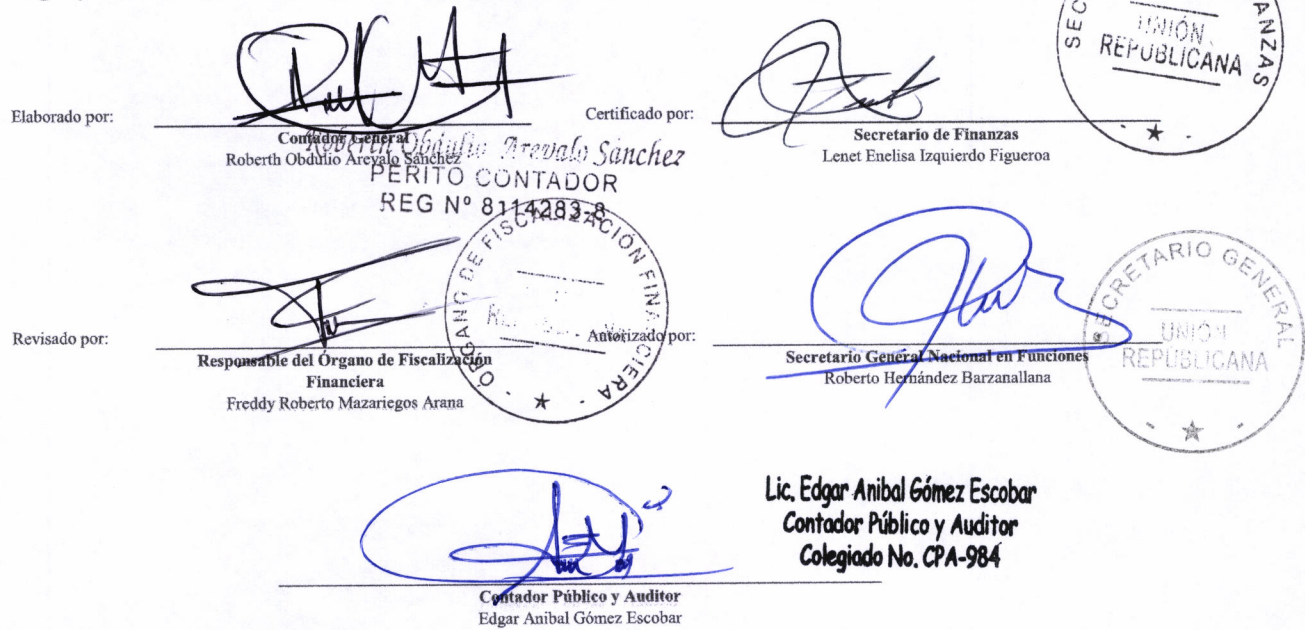 SEC
ANZAS
UNIÓN
REPUBLICANA
Elaborado por:
Contador General
Roberth Obdulio Arevalo Sánchez
Roberth Obdulio Arevalo Sánchez
PERITO CONTADOR
REG Nº 8114283-8
Certificado por:
Secretario de Finanzas
Lenet Enelisa Izquierdo Figueroa
Revisado por:
Responsable del Órgano de Fiscalización
Financiera
Freddy Roberto Mazariegos Arana
ÓRGANO DE FISCALIZACIÓN FINANCIERA
Autorizado por:
Secretario General Nacional en Funciones
Roberto Hernández Barzanallana
SECRETARIO GENERAL
UNIÓN
REPUBLICANA
Lic. Edgar Anibal Gómez Escobar
Contador Público y Auditor
Colegiado No. CPA-984
Contador Público y Auditor
Edgar Anibal Gómez Escobar